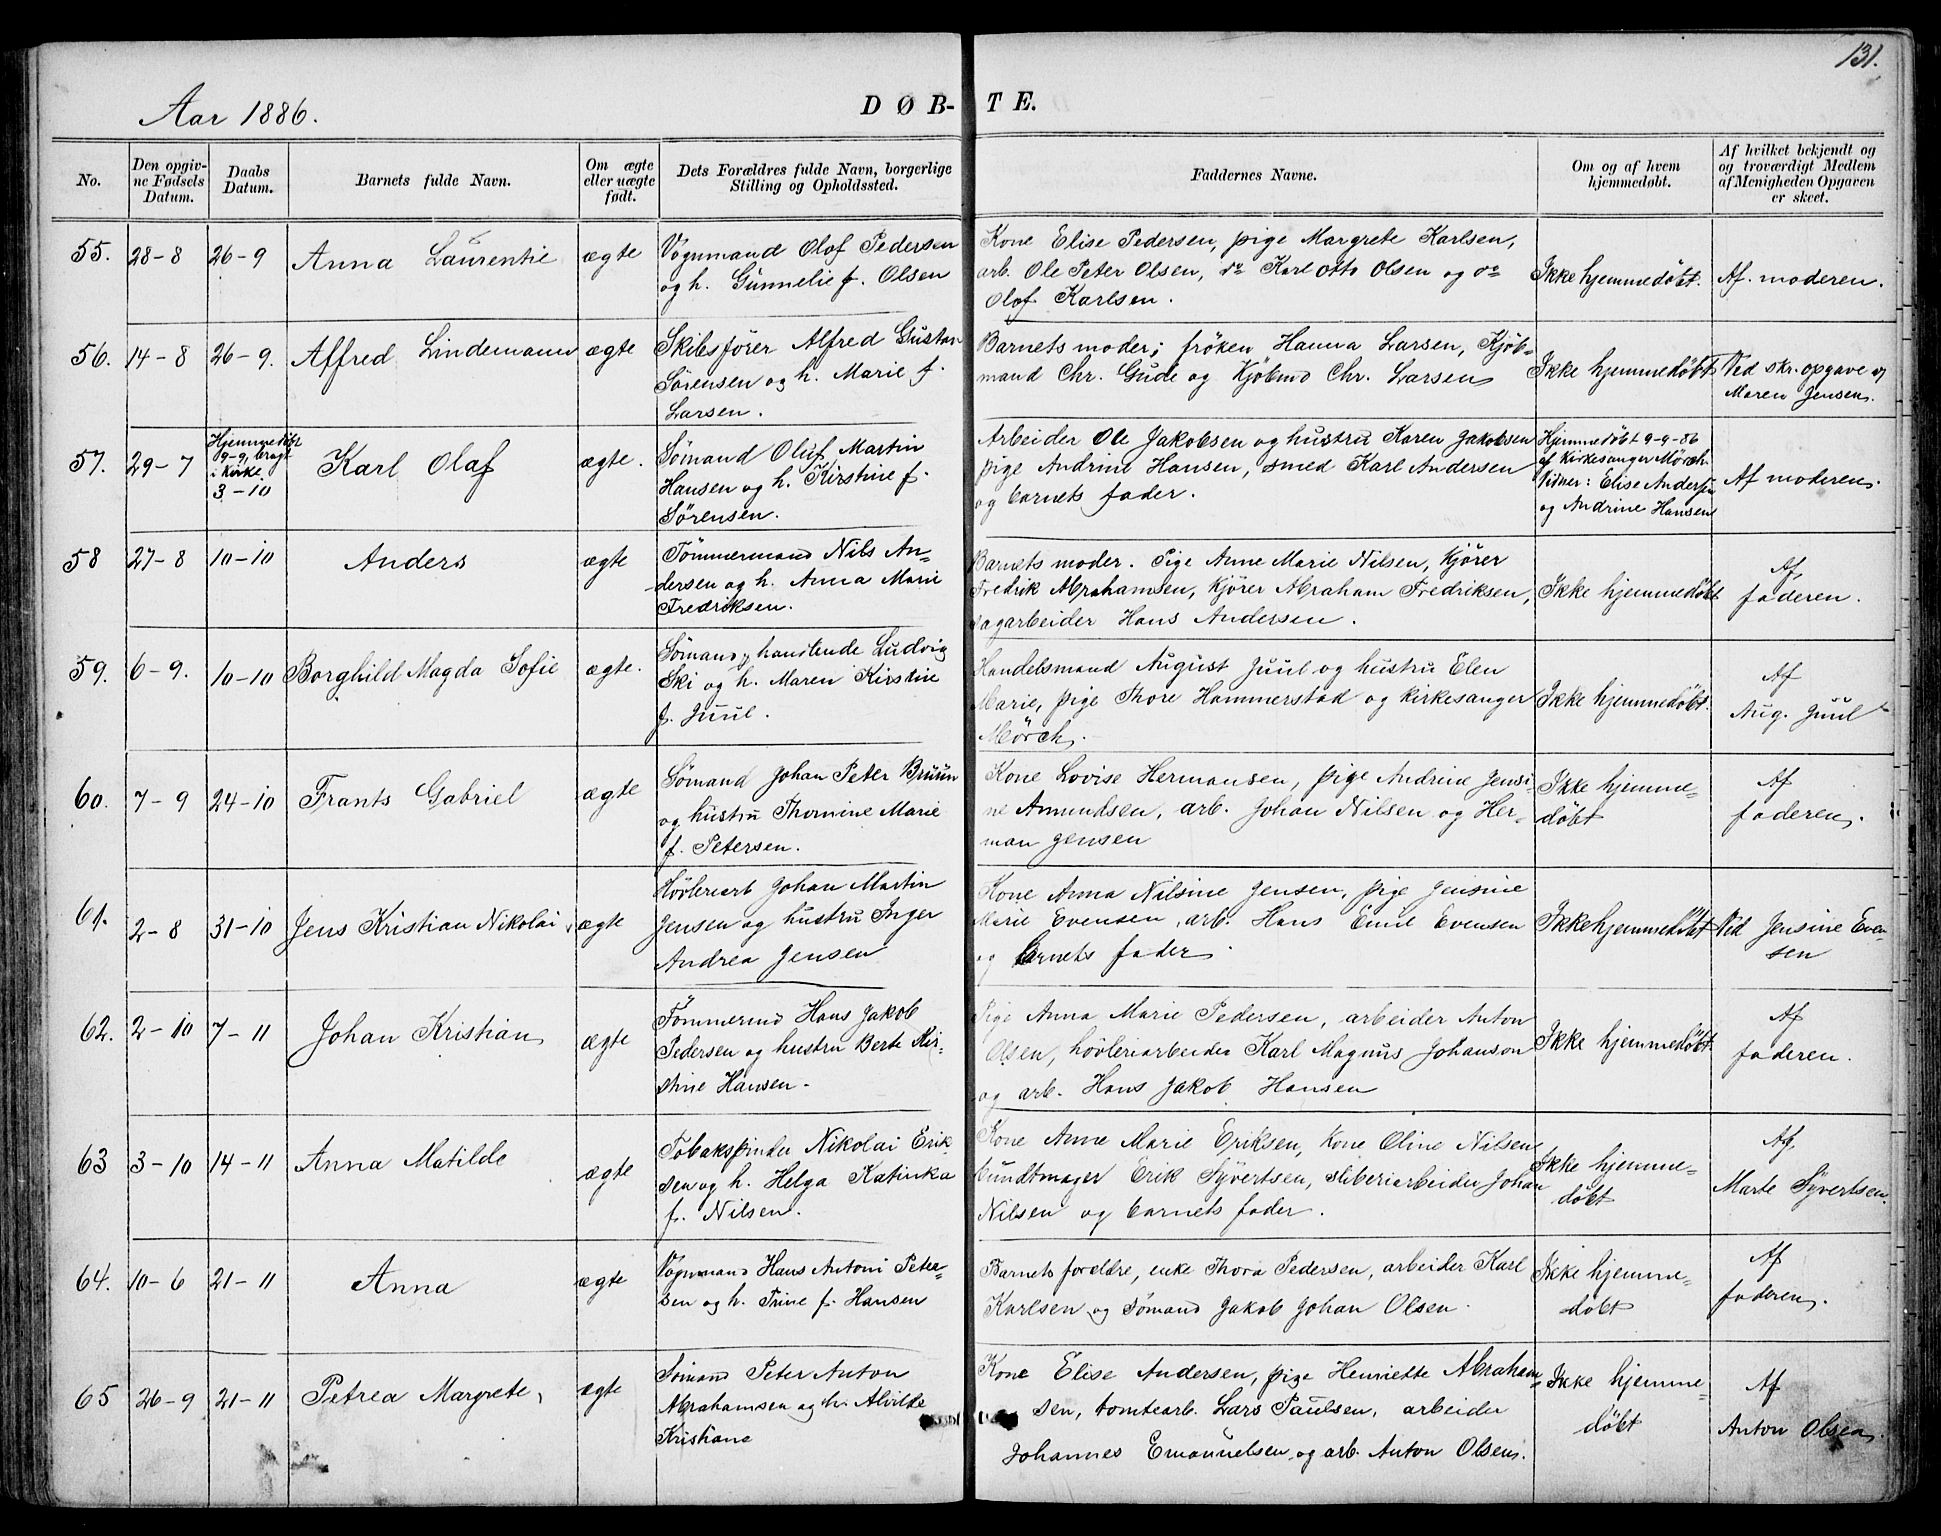 131.
Aar 1886.
DØB-TE.
No.
Den opgiv-
ne Fødsels
Datum.
Daabs
Datum.
Barnets fulde Navn.
Om ægte
eller uægte
født.
Dets Forældres fulde Navn, borgerlige
Stilling og Opholdssted.
Faddernes Navne.
Om og af hvem
hjemmedøbt.
Af hvilket bekjendt og
og troværdigt Medlem
af Menigheden Opgaven
er skeet.
55.
28-8
26-9
Anna Laurentie
ægte
Vognmand Olaf Pedersen
og h. Gunnelie f. Olsen
Kone Elise Pedersen, pige Margrete Karlsen,
arb. Ole Peter Olsen, do Karl Otto Olsen og do
Olaf Karlsen.
Ikke hjemmedøbt.
Af moderen.
56.
14-8
26-9.
Alfred Lindemann
ægte
Skibsfører Alfred Gustav
Sørensen og h. Marie f.
Larsen.
Barnets moder; frøken Hanna Larsen, Kjøb-
mand Chr. Gude og Kjøbmd Chr. Larsen
Ikke hjemmedøbt
Ved skr. opgave af
Maren Jensen.
57.
29-7
Hjemmedøbt
9-9, bragt
i Kirke
3-10
Karl Olaf
ægte.
Sømand Oluf Martin
Hansen og h. Kirstine f.
Sørensen.
Arbeider Ole Jakobsen og hustru Karen Jakobsen
pige Andrine Hansen, smed Karl Andersen
og barnets fader.
Hjemmedøbt 9-9-86
af Kirkesanger Mørch.
Vidner: Elise Andersen
og Andrine Hansen
Af moderen.
58
27-8
10-10
Anders
ægte
Tømmermand Nils An-
dersen og h. Anna Marie
Fredriksen.
Barnets moder. Pige Anne Marie Nilsen, Kjører
Fredrik Abrahamsen, Kjører Abraham Fredriksen,
sagarbeider Hans Andersen.
Ikke hjemmedøbt
Af
faderen.
59.
6-9.
10-10
Borghild Magda Sofie
ægte.
Sømand, handlende Ludvig
Ski og h. Maren Kirstine
f. Juul.
Handelsmand August Juul og hustru Elen
Marie, pige Thore Hammerstad og kirkesanger
Mørch.
Ikke hjemmedøbt.
Af
Aug. Juul
60.
7-9
24-10
Frants Gabriel
ægte
Sømand Johan Peter Bruun
og hustru Thomine Marie
f. Petersen.
Kone Lovise Hermansen, pige Andrine Jensi-
ne Amundsen, arb. Johan Nilsen og Her-
man Jensen
Ikke hjemme-
døbt
Af
faderen.
61.
2-8
31-10
Jens Kristian Nikolai
ægte
Høvleriarb Johan Martin
Jensen og hustru Inger
Andrea Jensen
Kone Anna Nilsine Jensen, pige Jensine
Marie Evensen, arb. Hans Emil Evensen
og barnets fader.
Ikke hjemmedøbt
Ved Jensine Even-
sen
62.
2-10
7-11
Johan Kristian
ægte
Tømmermd Hans Jakob
Pedersen og hustru Berte Kir-
stine Hansen.
Pige Anna Marie Pedersen, arbeider Anton
Olsen, høvleriarbeider Karl Magnus Johanson
og arb. Hans Jakob Hansen
Ikke hjemmedøbt.
Af
faderen.
63
3-10
14-11
Anna Matilde
ægte
Tobakspinder Nikolai Erik
sen og h. Helga Katinka
f. Nilsen.
Kone Anne Marie Eriksen, Kone Oline Nilsen
bundtmager Erik Syvertsen, sliberiarbeider Johan
Nilsen og barnets fader.
Ikke hjemme-
døbt
Af
Marte Syvertsen.
64.
10-6
21-11
Anna
ægte
Vognmand Hans Antoni Peter-
sen og h. Trine f. Hansen
Barnets forældre, enke Thora Pedersen, arbeider Karl
Karlsen og sømand Jakob Johan Olsen.
Ikke hjemme-
døbt
Af
faderen.
65
26-9
21-11
Petrea Margrete
ægte
Sømand Peter Anton
Abrahamsen og h. Alvilde
Kristiane
Kone Elise Andersen, pige Henriette Abraham-
sen, tomtearb. Lars Paulsen, arbeider
Johannes Emanuelsen og arb. Anton Olsen.
Ikke hjemme-
døbt
Af
Anton Olsen.